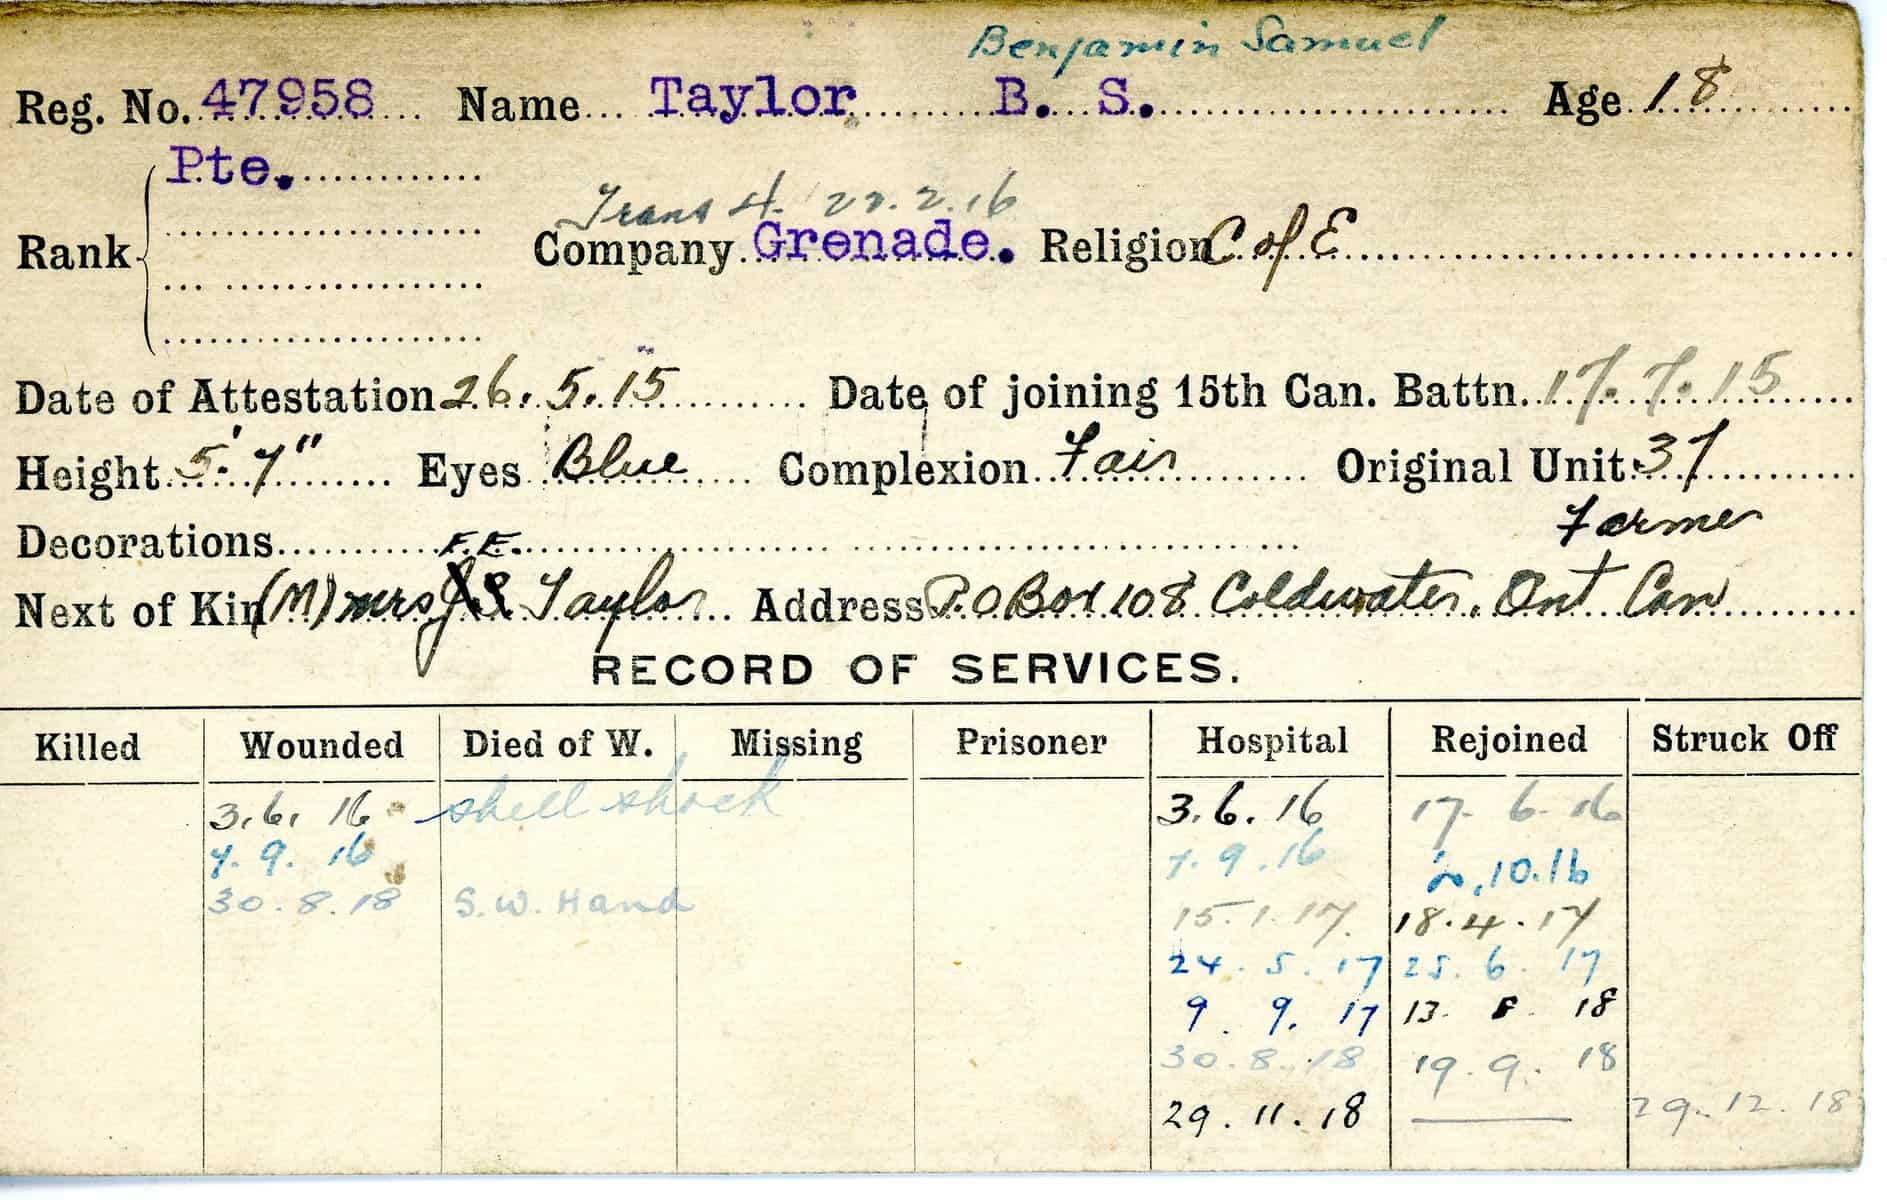 Benjamin Samuel
Reg. No. 47958 Name Taylor B. S. Age 18
Pte.
Trans 4. 22.2.16
Rank Company Grenade. Religion C of E
Date of Attestation 26.5.15 Date of joining 15th Can. Battn. 17.7.15
Height 5'.7" Eyes Blue Complexion Fair Original Unit. 37
Farmer
Decorations F.E.
Next of Kin (M) Mrs Taylor Address P.O Box 108 Coldwater, Ont Can
RECORD OF SERVICES.
Killed Wounded Died of W. Missing Prisoner Hospital Rejoined Struck Off
3.6.16 shell shock 3.6.16 17.6.16
7.9.16 7.9.16 10.16
30.8.18 S.W. Hand 15.1.17. 18.4.17
24.5.17 25.6.17
9.9.17 13.8.18
30.8.18 19.9.18
29.11.18 29.12.18